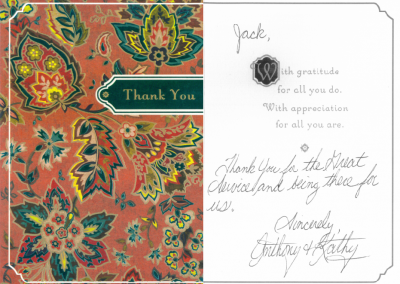 Thank You
Jack,
With gratitude
for all you do.
With appreciation
for all you are.
Thank You for the Great
Service and being there for
us.
Sincerely
Anthony & Kathy